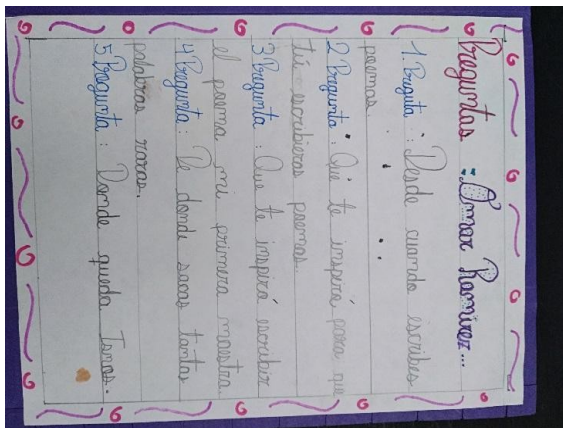 Preguntas : Omar Ramirez...
1. Preguta : Desde cuando escribes
poemas.
2 Pregunta : Que te inspiró para que
tú escribieras poemas.
3 Pregunta : Que te inspiró escribir
el poema mi primera maestra.
4 Pregunta : De donde sacas tantas
palabras raras.
5 Pregunta : Donde queda Isnos.